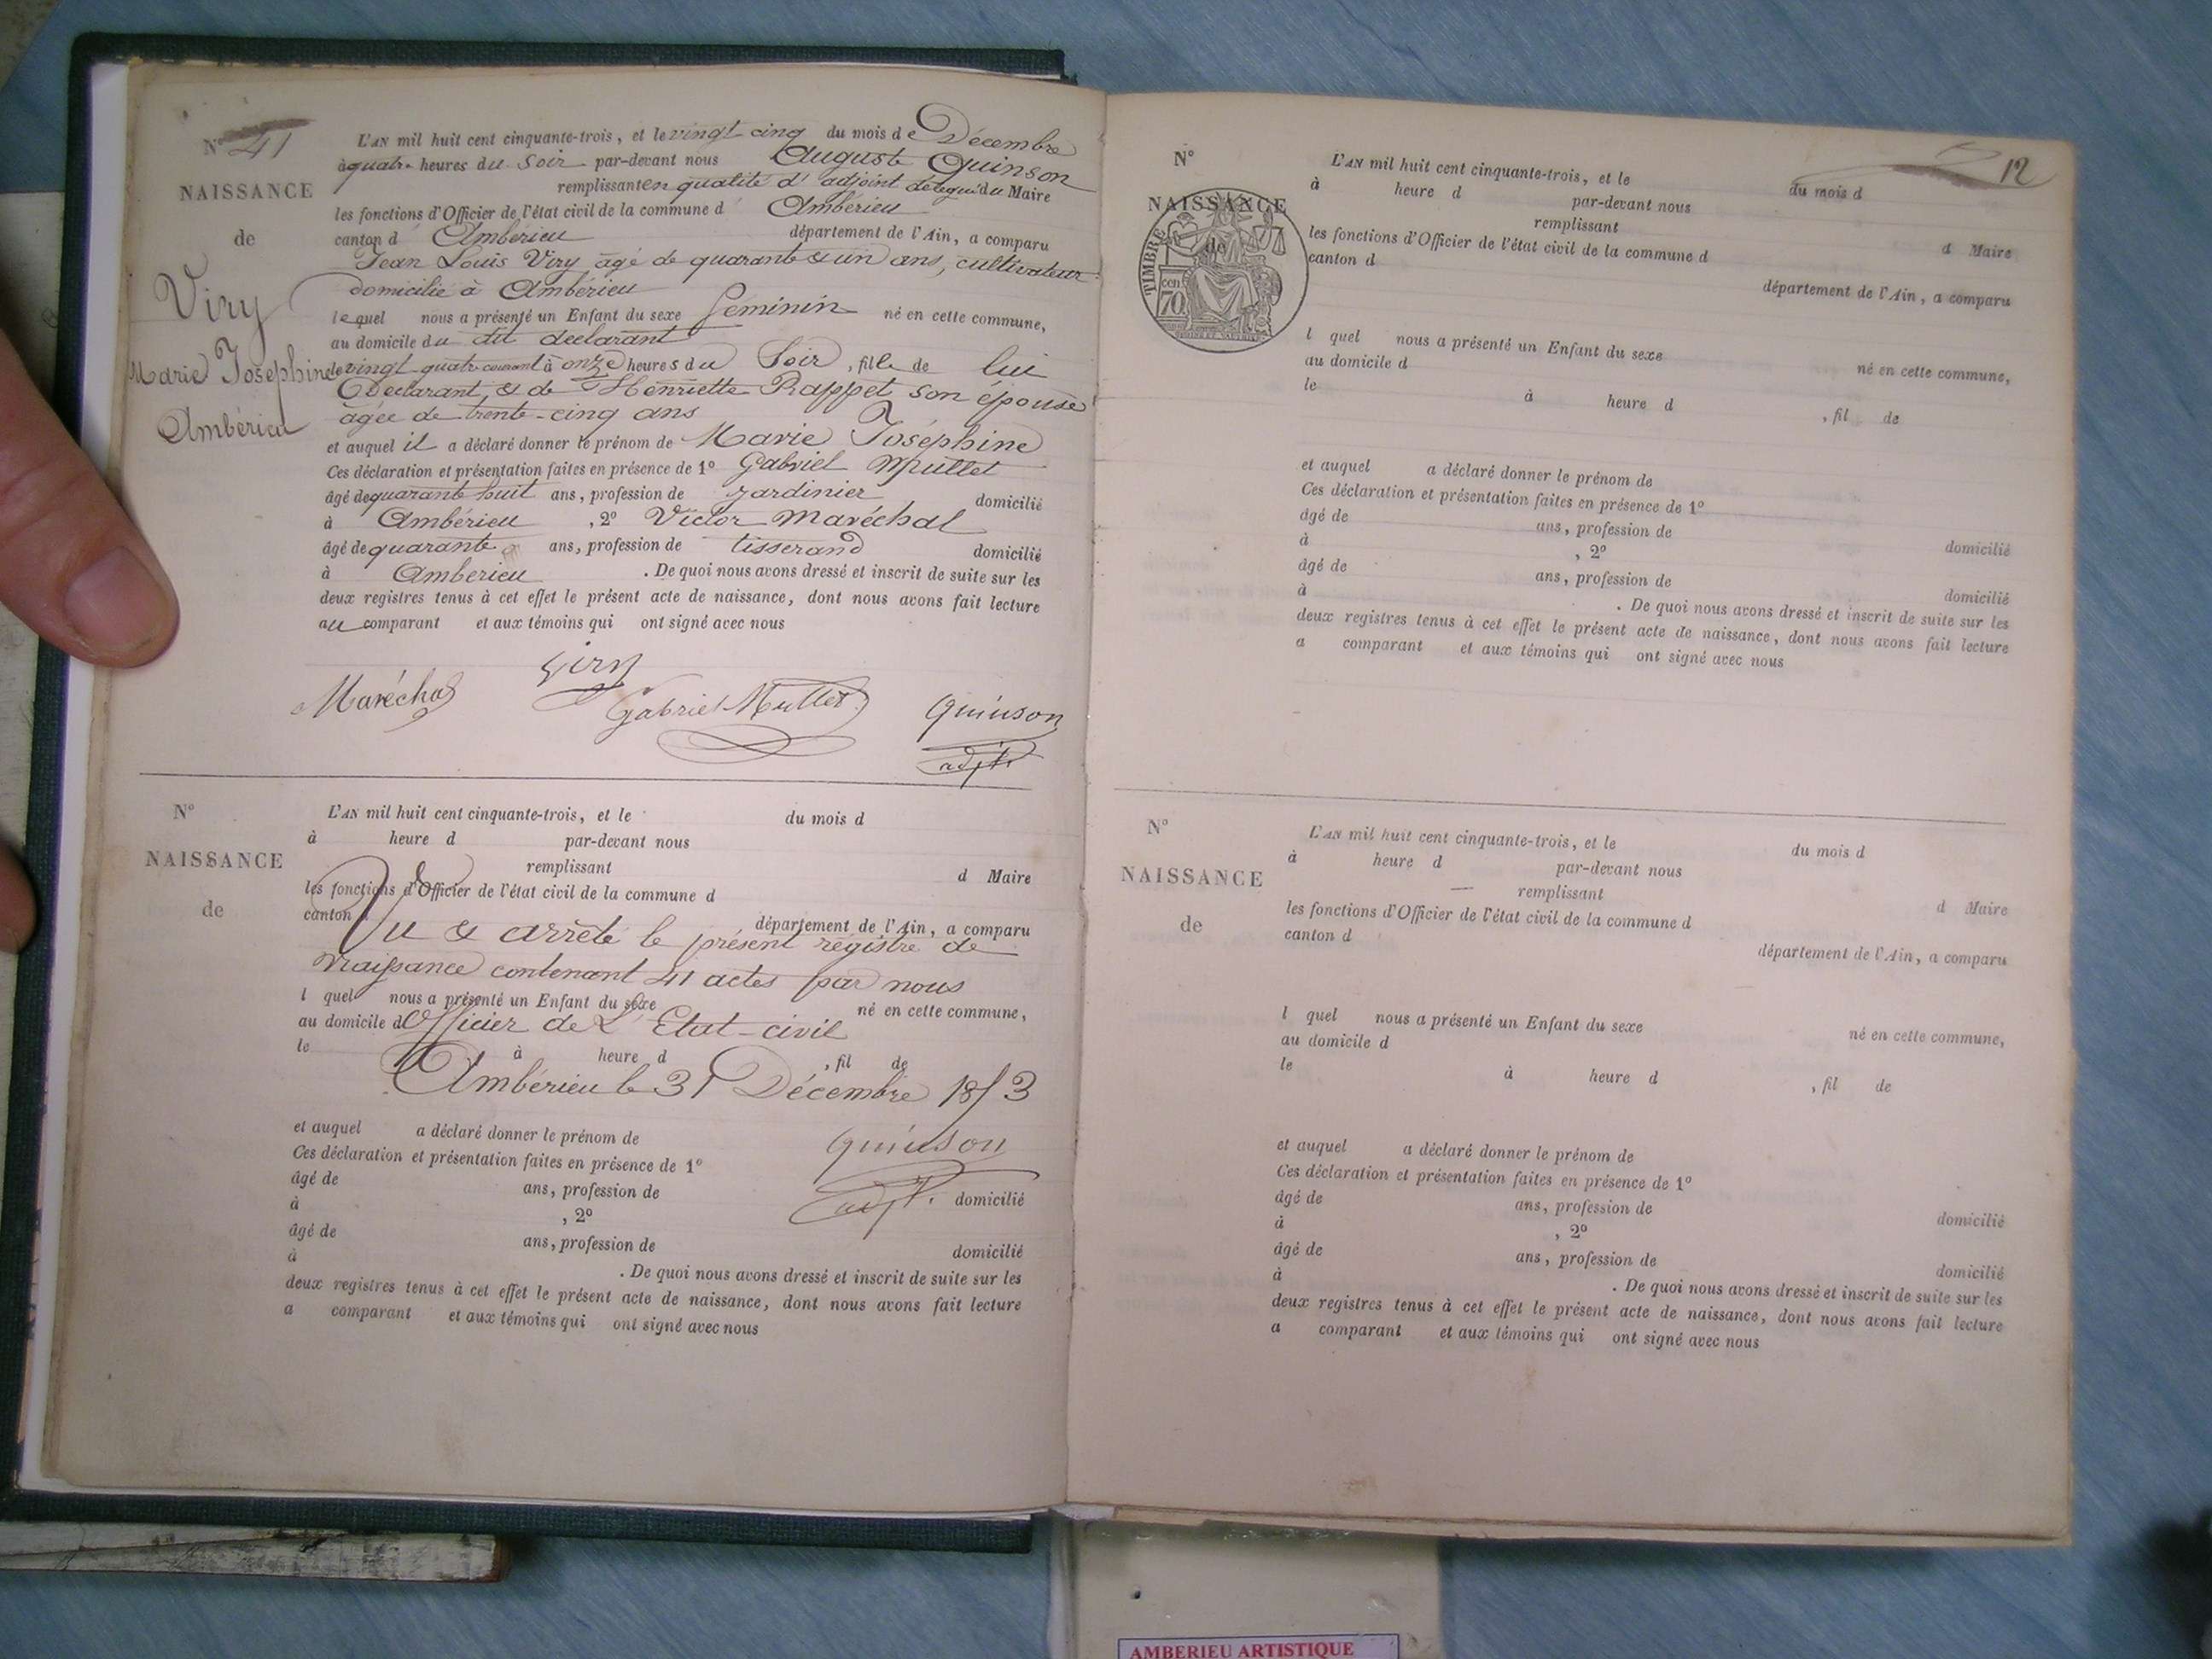 N° 41
NAISSANCE
de
Viry
Marie Joséphine
Ambérieu
L'AN mil huit cent cinquante-trois, et le vingt cinq du mois de Décembre
à quatre heures du Soir par-devant nous Auguste Quinson
remplissant en qualité d'adjoint délégué du Maire
les fonctions d'Officier de l'état civil de la commune d'Ambérieu
canton d'Ambérieu département de l'Ain, a comparu
Jean Louis Viry âgé de quarante & un ans, cultivateur
domicilié à Ambérieu
lequel nous a présenté un Enfant du sexe féminin né en cette commune,
au domicile du dit déclarant
le vingt quatre courant à onze heures du Soir, fille de lui
Déclarant, & de Henriette Rappet son épouse
agée de trente-cinq ans
et auquel il a déclaré donner le prénom de Marie Joséphine
Ces déclaration et présentation faites en présence de 1° Gabriel Mullet
âgé de quarante huit ans, profession de jardinier domicilié
à Ambérieu, 2° Victor Maréchal
âgé de quarante ans, profession de tisserand domicilié
à Ambérieu. De quoi nous avons dressé et inscrit de suite sur les
deux registres tenus à cet effet le présent acte de naissance, dont nous avons fait lecture
au comparant et aux témoins qui ont signé avec nous
Viry
Maréchal Gabriel Mullet Quinson
adjt.
N°
NAISSANCE
de
L'AN mil huit cent cinquante-trois, et le du mois d
à heure d par-devant nous
remplissant d Maire
les fonctions d'Officier de l'état civil de la commune d
canton d département de l'Ain, a comparu
Vu & arrêté le présent régistre de
Naissance contenant 41 actes par nous
l quel nous a présenté un Enfant du sexe né en cette commune,
au domicile d
Officier de L'Etat-civil
le à heure d , fil de
Ambérieu le 31 Décembre 1853
et auquel a déclaré donner le prénom de
Quinson
Ces déclaration et présentation faites en présence de 1°
âgé de ans, profession de domicilié
adjt.
à , 2°
âgé de ans, profession de domicilié
à . De quoi nous avons dressé et inscrit de suite sur les
deux registres tenus à cet effet le présent acte de naissance, dont nous avons fait lecture
a comparant et aux témoins qui ont signé avec nous
12
N°
NAISSANCE
de
TIMBRE
cen
70
L'AN mil huit cent cinquante-trois, et le du mois d
à heure d par-devant nous
remplissant d Maire
les fonctions d'Officier de l'état civil de la commune d
canton d département de l'Ain, a comparu
l quel nous a présenté un Enfant du sexe né en cette commune,
au domicile d
le à heure d , fil de
et auquel a déclaré donner le prénom de
Ces déclaration et présentation faites en présence de 1°
âgé de ans, profession de domicilié
à , 2°
âgé de ans, profession de domicilié
à . De quoi nous avons dressé et inscrit de suite sur les
deux registres tenus à cet effet le présent acte de naissance, dont nous avons fait lecture
a comparant et aux témoins qui ont signé avec nous
N°
NAISSANCE
de
L'AN mil huit cent cinquante-trois, et le du mois d
à heure d par-devant nous
remplissant d Maire
les fonctions d'Officier de l'état civil de la commune d
canton d département de l'Ain, a comparu
l quel nous a présenté un Enfant du sexe né en cette commune,
au domicile d
le à heure d , fil de
et auquel a déclaré donner le prénom de
Ces déclaration et présentation faites en présence de 1°
âgé de ans, profession de domicilié
à , 2°
âgé de ans, profession de domicilié
à . De quoi nous avons dressé et inscrit de suite sur les
deux registres tenus à cet effet le présent acte de naissance, dont nous avons fait lecture
a comparant et aux témoins qui ont signé avec nous
AMBERIEU ARTISTIQUE